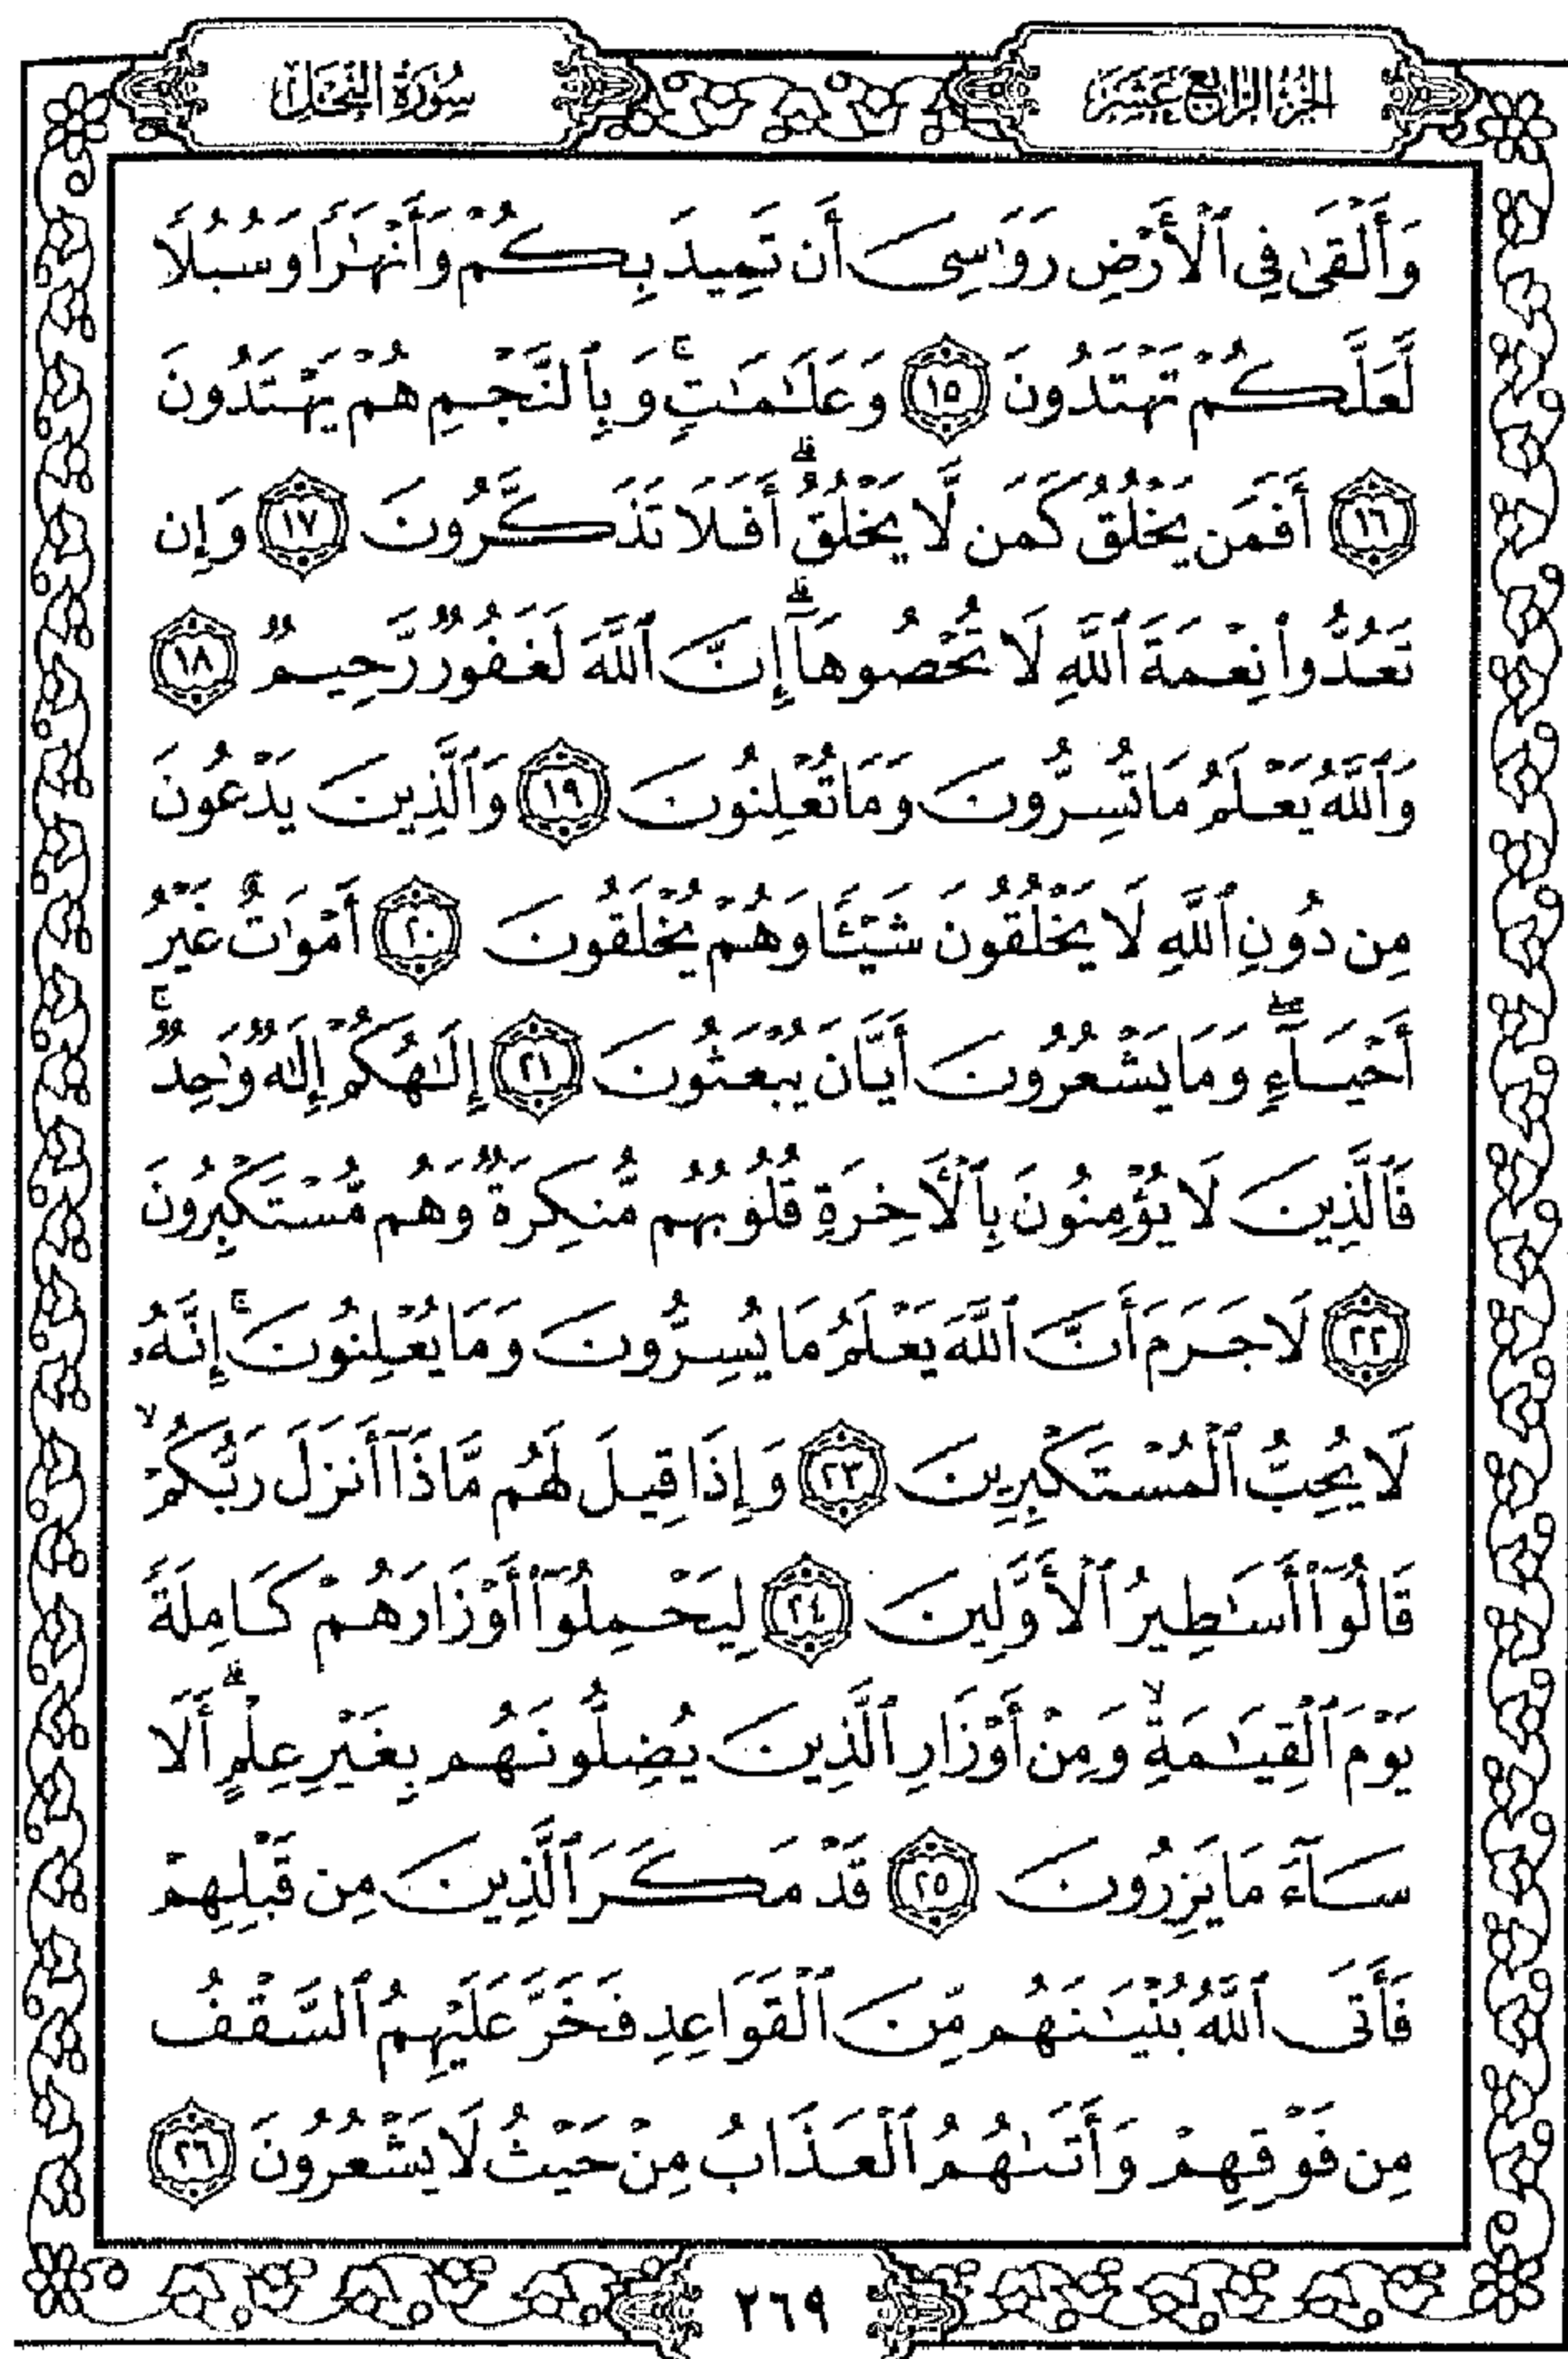 الجزء الرابع عشر
سورة النحل
وَأَلْقَىٰ فِى ٱلْأَرْضِ رَوَٰسِىَ أَن تَمِيدَ بِكُمْ وَأَنْهَٰرًا وَسُبُلًا
لَّعَلَّكُمْ تَهْتَدُونَ ١٥ وَعَلَٰمَٰتٍ ۚ وَبِٱلنَّجْمِ هُمْ يَهْتَدُونَ
١٦ أَفَمَن يَخْلُقُ كَمَن لَّا يَخْلُقُ ۗ أَفَلَا تَذَكَّرُونَ ١٧ وَإِن
تَعُدُّوا۟ نِعْمَةَ ٱللَّهِ لَا تُحْصُوهَآ ۗ إِنَّ ٱللَّهَ لَغَفُورٌ رَّحِيمٌ ١٨
وَٱللَّهُ يَعْلَمُ مَا تُسِرُّونَ وَمَا تُعْلِنُونَ ١٩ وَٱلَّذِينَ يَدْعُونَ
مِن دُونِ ٱللَّهِ لَا يَخْلُقُونَ شَيْـًٔا وَهُمْ يُخْلَقُونَ ٢٠ أَمْوَٰتٌ غَيْرُ
أَحْيَآءٍ ۖ وَمَا يَشْعُرُونَ أَيَّانَ يُبْعَثُونَ ٢١ إِلَٰهُكُمْ إِلَٰهٌ وَٰحِدٌ ۚ
فَٱلَّذِينَ لَا يُؤْمِنُونَ بِٱلْـَٔاخِرَةِ قُلُوبُهُم مُّنكِرَةٌ وَهُم مُّسْتَكْبِرُونَ
٢٢ لَا جَرَمَ أَنَّ ٱللَّهَ يَعْلَمُ مَا يُسِرُّونَ وَمَا يُعْلِنُونَ ۚ إِنَّهُۥ
لَا يُحِبُّ ٱلْمُسْتَكْبِرِينَ ٢٣ وَإِذَا قِيلَ لَهُم مَّاذَآ أَنزَلَ رَبُّكُمْ ۙ
قَالُوٓا۟ أَسَٰطِيرُ ٱلْأَوَّلِينَ ٢٤ لِيَحْمِلُوٓا۟ أَوْزَارَهُمْ كَامِلَةً
يَوْمَ ٱلْقِيَٰمَةِ ۙ وَمِنْ أَوْزَارِ ٱلَّذِينَ يُضِلُّونَهُم بِغَيْرِ عِلْمٍ ۗ أَلَا
سَآءَ مَا يَزِرُونَ ٢٥ قَدْ مَكَرَ ٱلَّذِينَ مِن قَبْلِهِمْ
فَأَتَى ٱللَّهُ بُنْيَٰنَهُم مِّنَ ٱلْقَوَاعِدِ فَخَرَّ عَلَيْهِمُ ٱلسَّقْفُ
مِن فَوْقِهِمْ وَأَتَىٰهُمُ ٱلْعَذَابُ مِنْ حَيْثُ لَا يَشْعُرُونَ ٢٦
٢٦٩